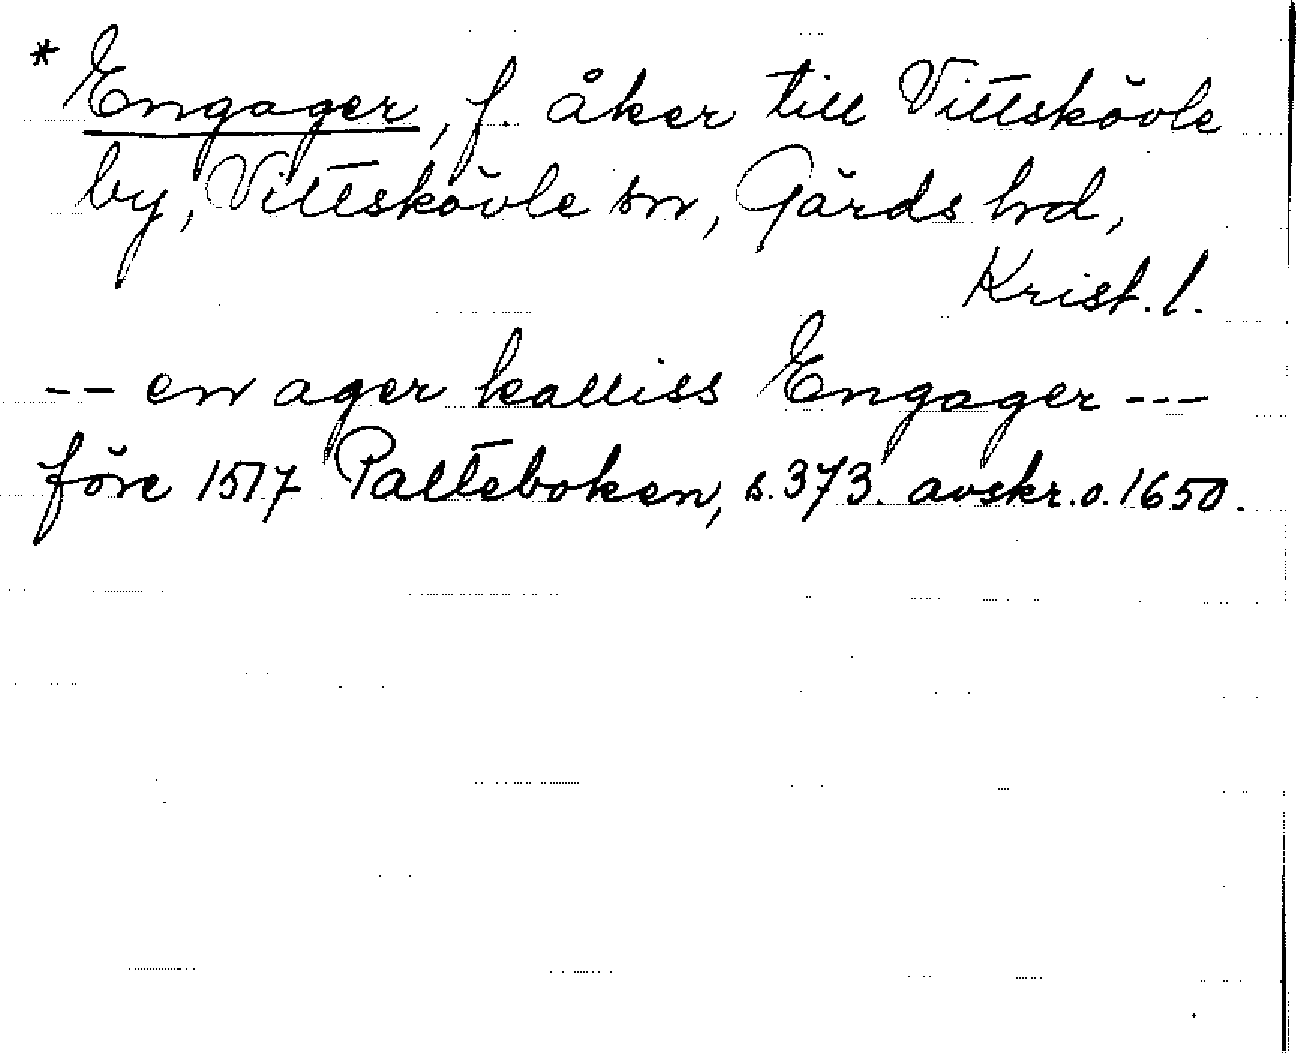 * Engager, f. åker till Vittskövle
by, Vittskövle sn, Gärds hd,
Krist. l.
-- en ager kalliss Engager ---
före 1517 Palteboken, s. 373. avskr. o. 1650.